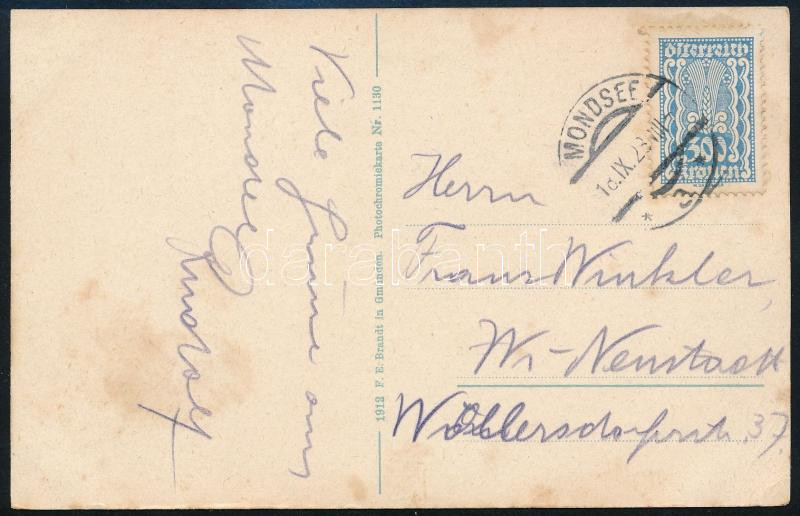 Viele Grüsse aus
Mondsee
Rudolf
1912 F. E. Brandt in Gmunden. Photochromiekarte Nr. 1130
Österreich
Kronen
MONDSEE
IX.23
Herrn
Franz Winkler,
Wr-Neustadt
Wöllersdorferstr. 37.
darabanth